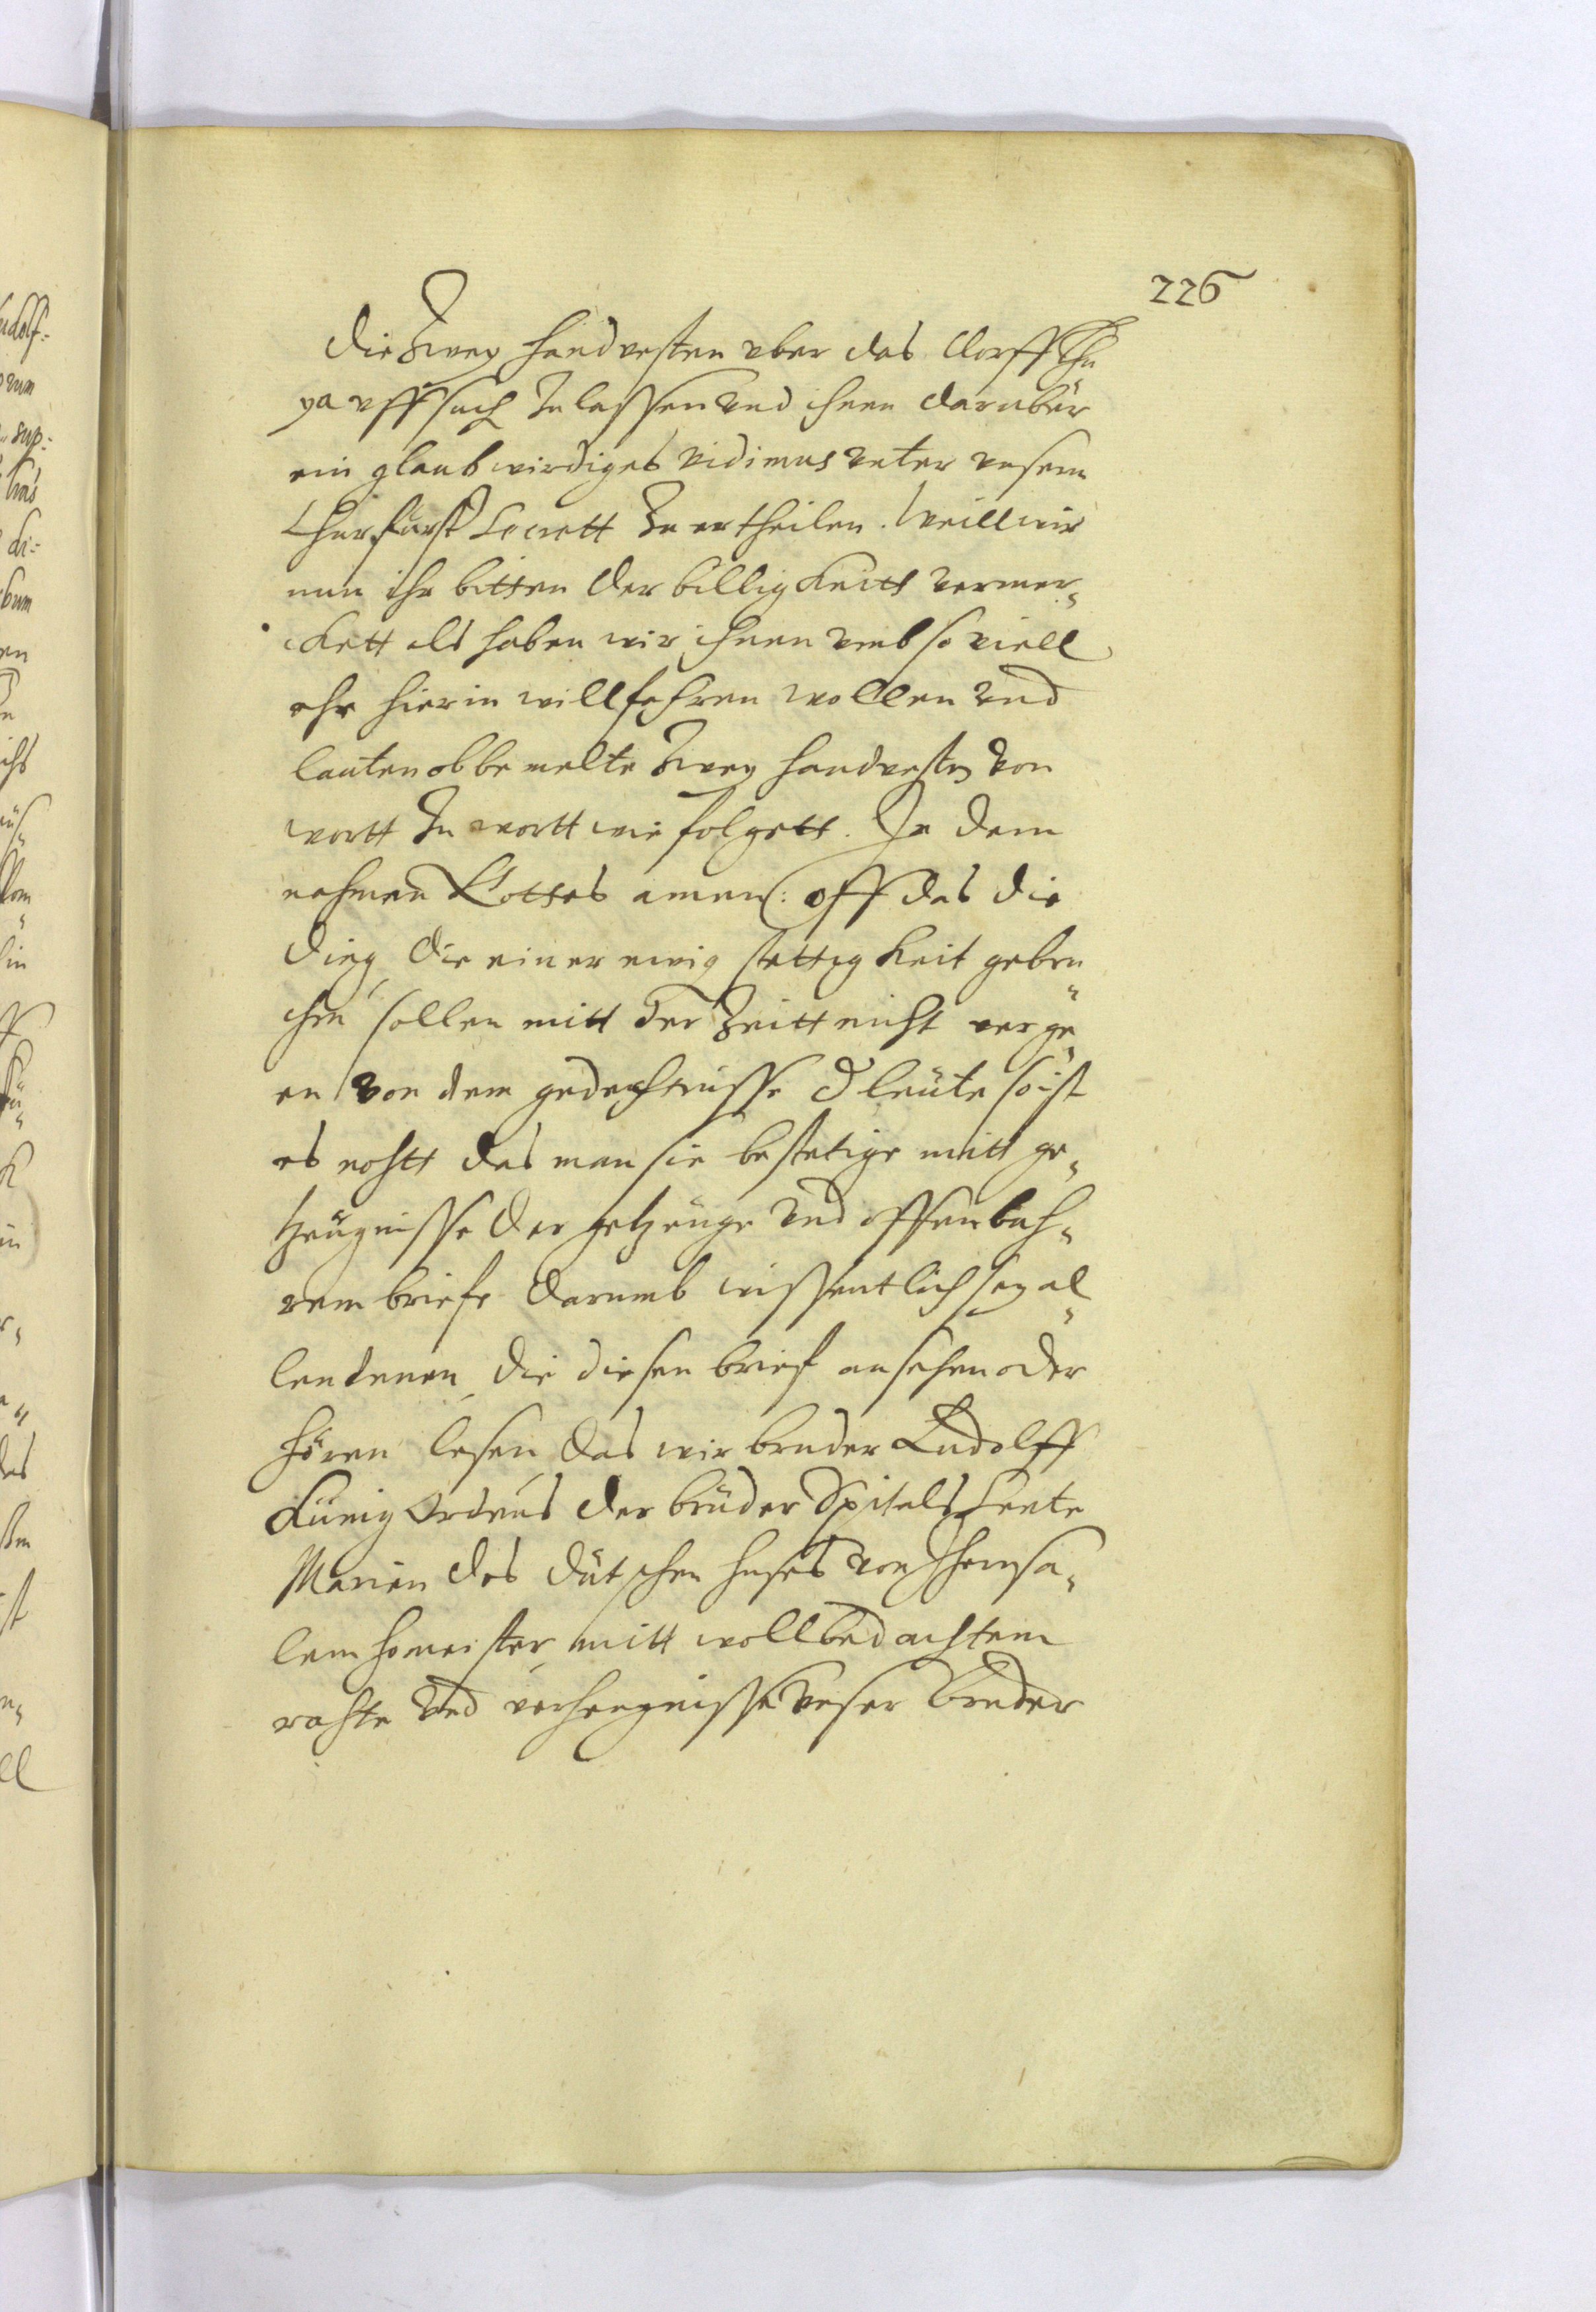 226
die Zwey handvesten vber das dorff Thu
ya vffsuch zulassen und ihnen daruber
ein glaubwirdiges vidimus unter unserm
Churfürst Secrett zu ertheilen. Weill wir
nun ihr bitten der billigkeitt vermer„
kett als haben wir ihnen umb so viell
ehr hierin willfahren wollen und
lauten obbemelte Zwey handvesten von
wortt zu wortt wie folgett. In dem
nahmen Gottes amen: Off das die
ding die einer ewig stettigkeit gebru„
chen sollen mitt der Zeitt nicht verge„
en von dem gedechtnisse d leüte so ist
es nohtt das man sie bestetige mitt ge„
tzeugnisse der getzeuge und offenbah„
rem briefe darumb wissentlich sey al„
len denen die diesen brief ansehen oder
hören lesen das wir bruder Ludolff
Künig Ordens der brüder Spitals Sente
Marien des dütschen huses von Iherusa„
lem homeister mitt wollbedachtem
rahte und verhengnisse unser Bruder
udolf-
rum
sup:
di-
bum
en
ichs
lin
das
st
ll